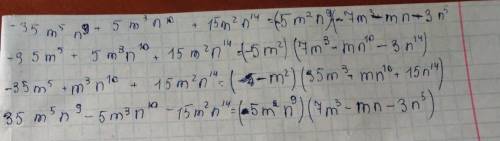 -35 m⁵ n⁹ + 5 m³ n¹⁰ + 15 m² n¹⁴ = (-5 m² n⁹)(-7m³ - mn - 3 n⁵
-35 m⁵ + 5 m³ n¹⁰ + 15 m² n¹⁴ = (-5m²) (7m³ - mn¹⁰ - 3n¹⁴)
-35 m⁵ + m³ n¹⁰ + 15 m² n¹⁴ = (-5-m²) (35m³ + mn¹⁰ + 15n¹⁴)
35 m⁵ n⁹ - 5 m³ n¹⁰ - 15 m² n¹⁴ = (-5m² n⁹) (7m³ - mn - 3n⁵)